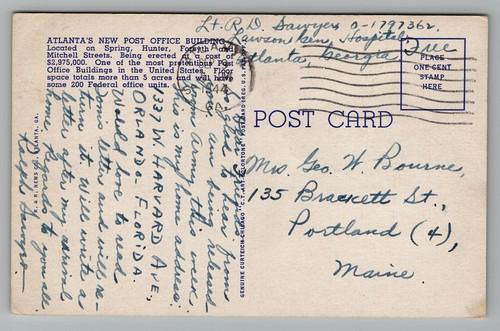 Lt. R. D. Sawyers O-1797362
Lawson Gen. Hospital
Atlanta, Georgia
Free
ATLANTA'S NEW POST OFFICE BUILDING
Located on Spring, Hunter, Forsyth and
Mitchell Streets. Being erected at a cost of
$2,975,000. One of the most pretentious Post
Office Buildings in the United States. Floor
space totals more than 5 acres and will have
some 200 Federal office units.
PLACE
ONE CENT
STAMP
HERE
44
GA.
POST CARD
Mrs. Geo. W. Bourne,
135 Brackett St.,
Portland (4),
Maine.
glad to hear from
am being released
from army this week.
This is my home address:
737 W. HARVARD AVE,
ORLANDO - FLORIDA.
Would love to read
Sonis letter and will re-
turn it. Will write a
letter after my arrival
home. Regards to you all.
Ralph Sawyers
R. & R. NEWS CO., ATLANTA, GA.
GENUINE CURTEICH-CHICAGO "C.T. ART-COLORTONE" POST CARD (REG. U.S. PAT. OFF.)